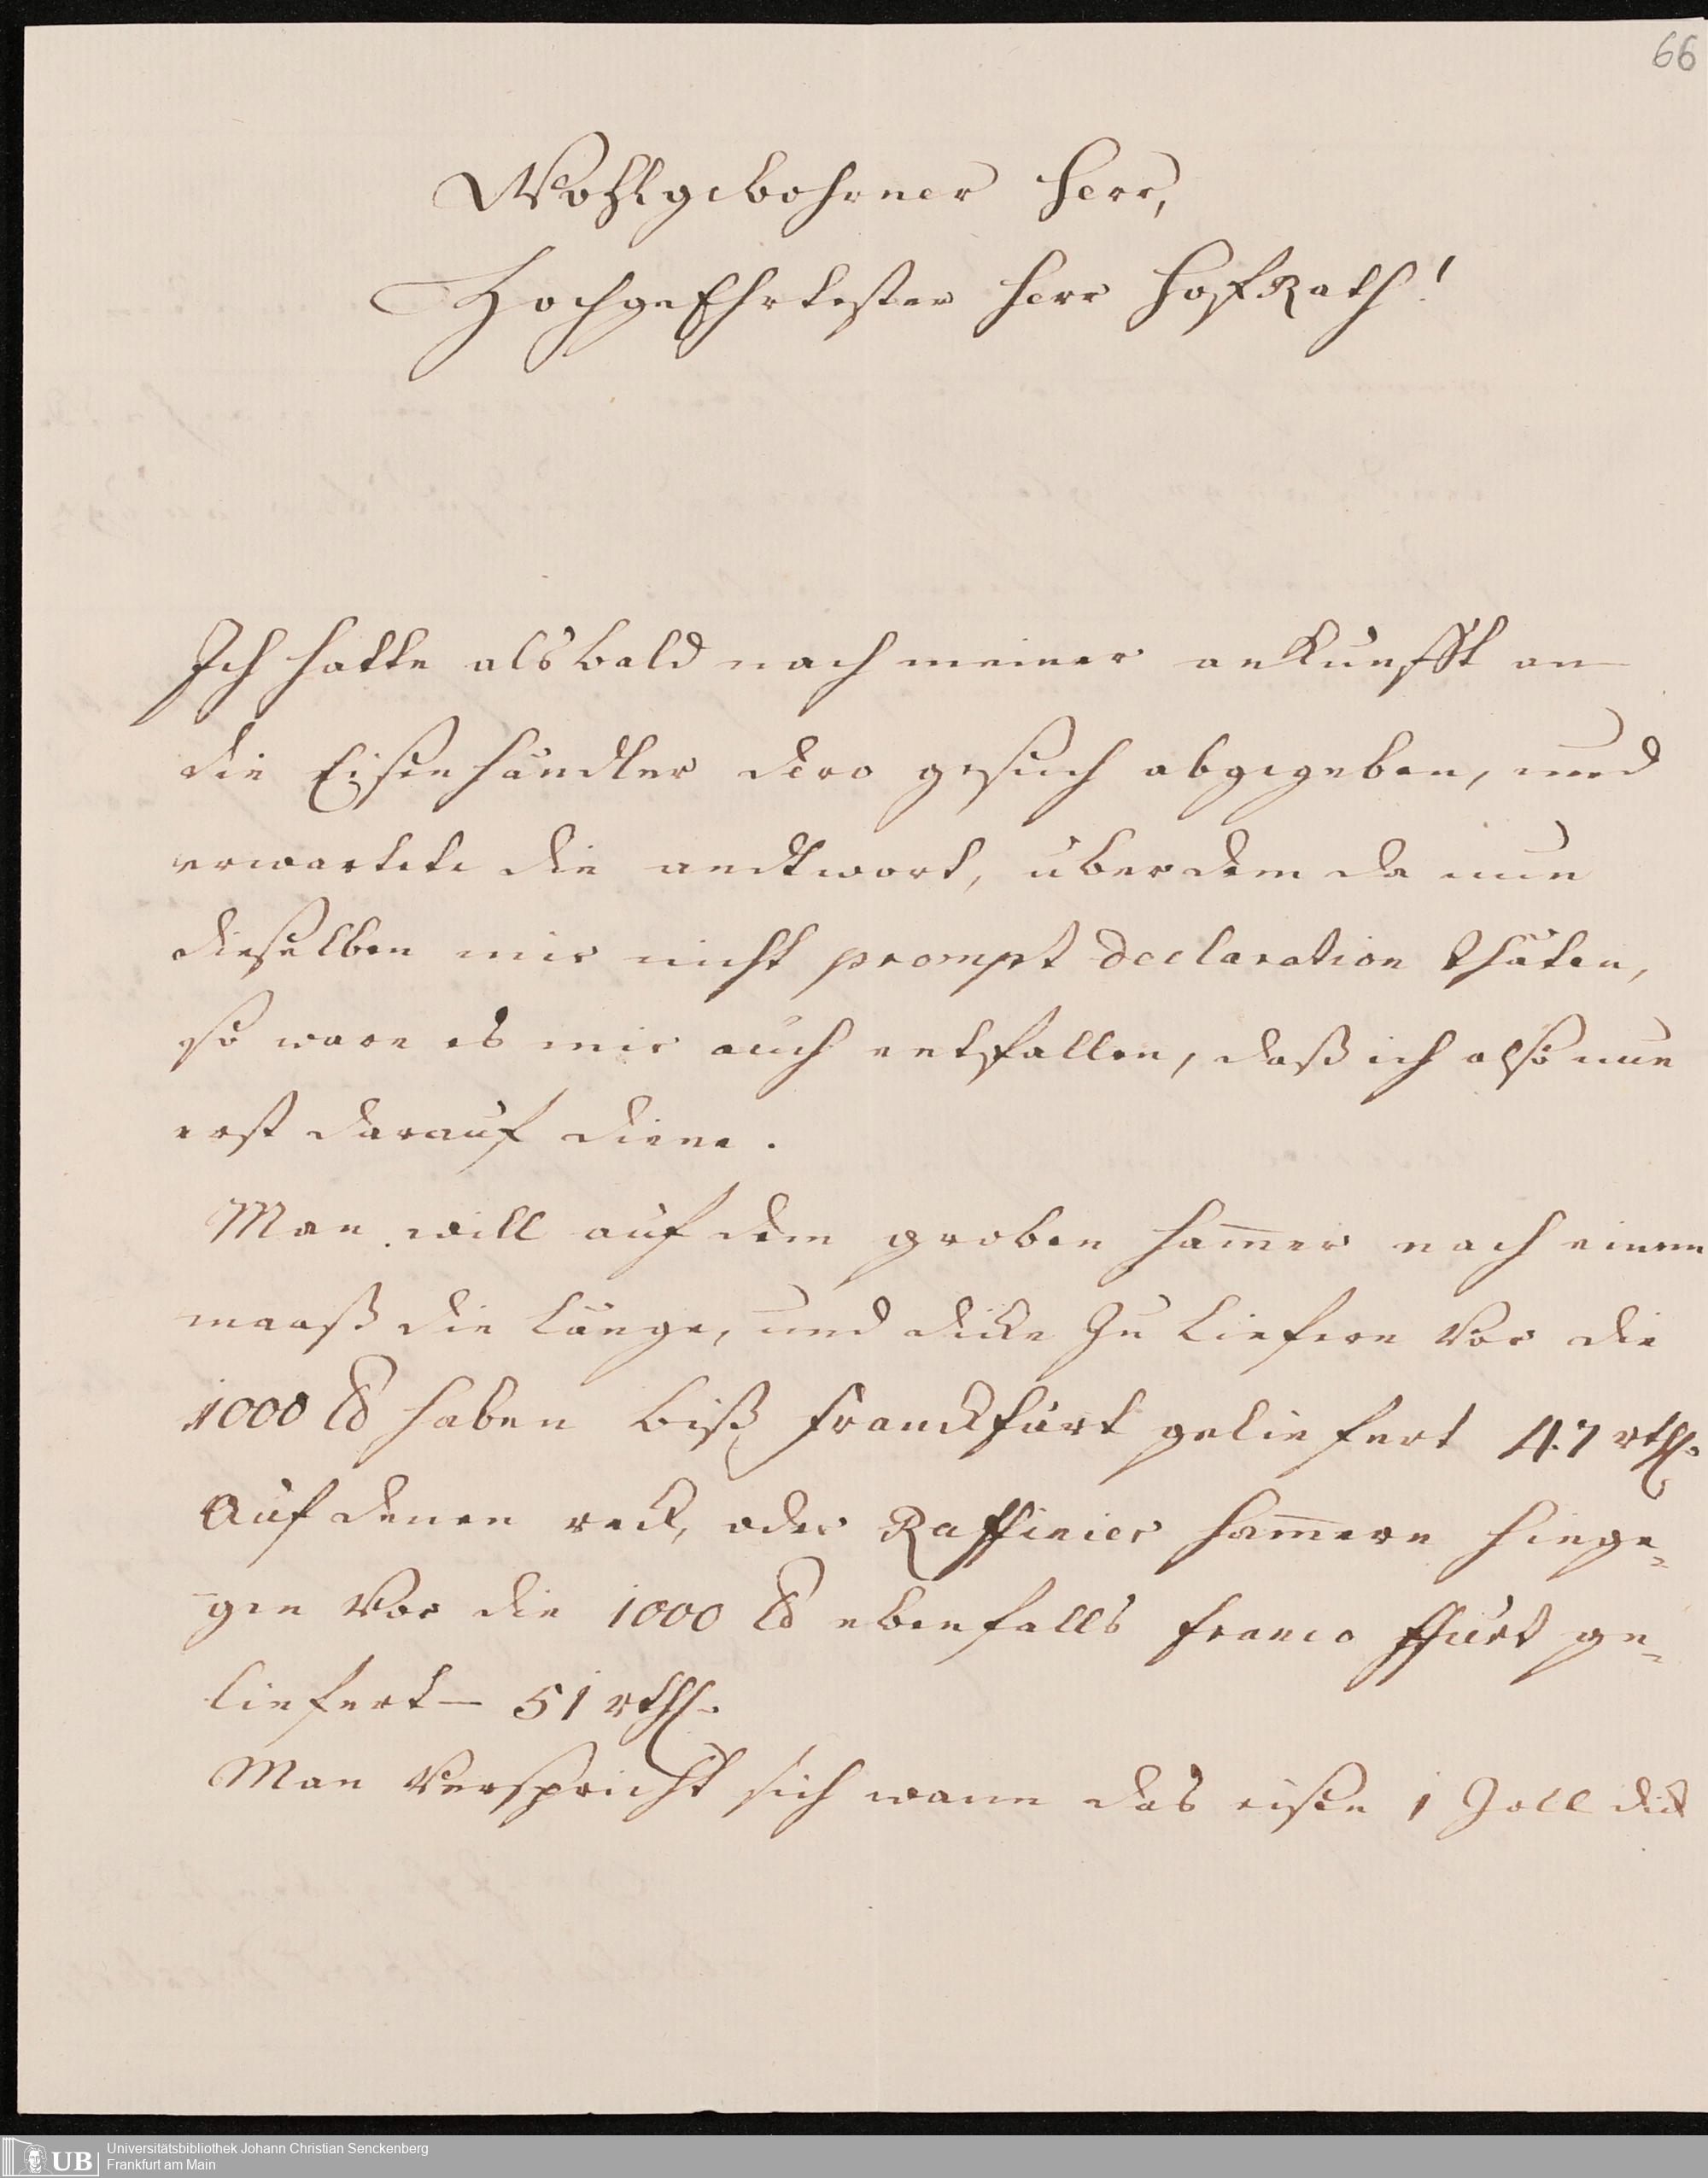 66
Wohlgebohrner Herr,
HochgeEhrtester Herr HofRath!
Ich hatte alsbald nach meiner ankunfft an
die Eisenhändler dero gesuch abgegeben, und
erwartete die andtwort, über dem da nun
dieselben mir nicht prompt declaration thäten,
so ware es mir auch entfallen, daß ich also nun
erst darauf diene.
Man will auf dem groben ham̅er nach einem
maaß die länge, und dicke zu liefern vor die
1000 ℔ haben biß franckfurt geliefert 47 rthl.
Auf denen reck, oder Raffinier ham̅ern hinge-
gen vor die 1000 ℔ ebenfalls franco ffurt ge-
liefert — 51 rthl.
Man verspricht sich wann das eisen 1 Zoll dick
UB Universitätsbibliothek Johann Christian Senckenberg
Frankfurt am Main